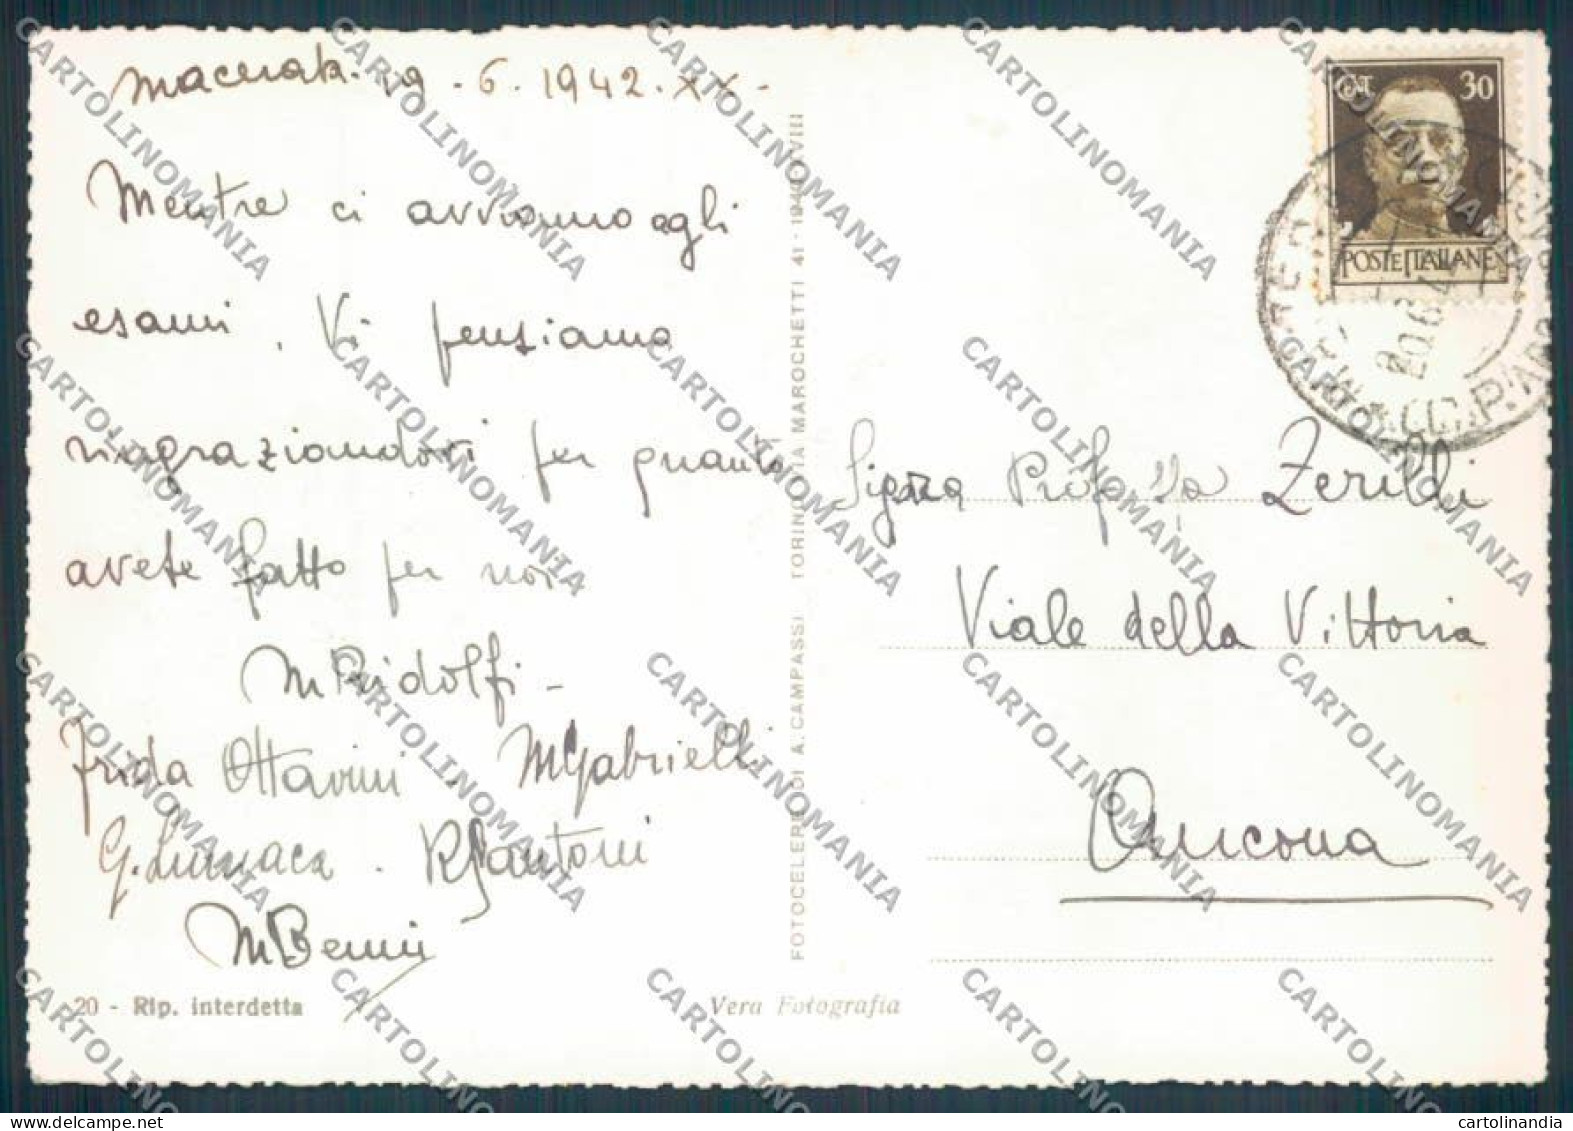 Macerata. 19. 6. 1942. XX.
Mentre ci avviamo agli
esami, Vi pensiamo
ringraziandovi per quanto
avete fatto per noi.
M Ridolfi -
Frida Ottavini. M Gabrielli
G. Lumaca. R Santoni
M Benni
20 - Rip. interdetta
Vera Fotografia
FOTOCELERE DI A. CAMPASSI TORINO VIA MAROCHETTI 41 - 1940 XVIII
CENT 30
POSTE ITALIANE
20.6.4
Sig.ra Prof.ssa Zerildi
Viale della Vittoria
Ancona
CARTOLINOMANIA
cartolinandia